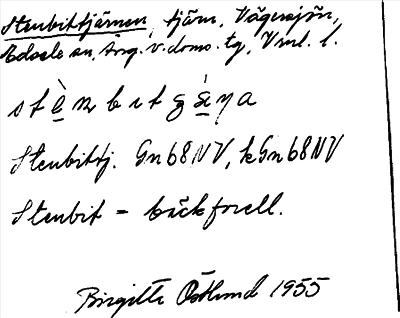 Stenbittjärnen, tjärn, Vågersjön,
Edsele sn, Ång. v. doms. tg, Vnl. l.
Stenbittj. Gnb8NV, kGnb8NV
Stenbit = bäckforell.
Birgitta Östlund 1955